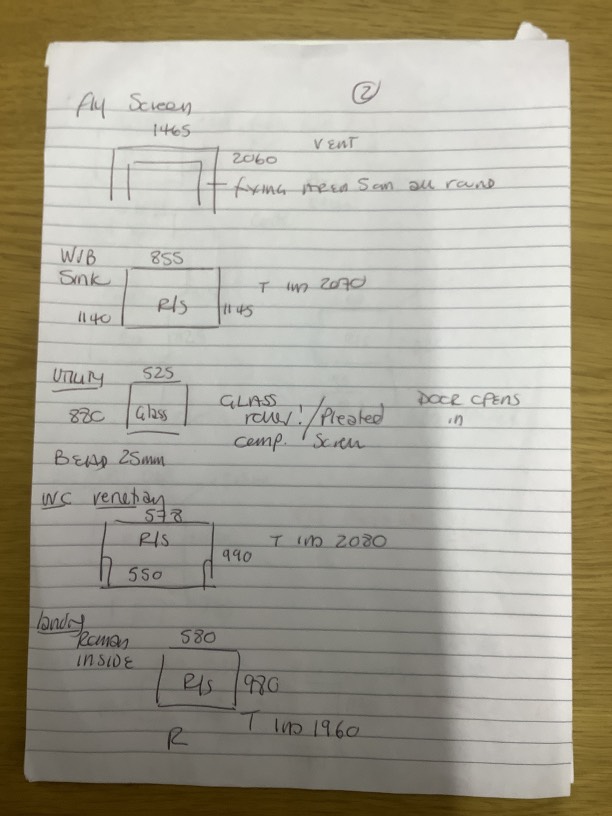 ②
Fly Screen
1465
VENT
2060
fixing area 5cm all round
W/B 855
Sink
R/S T in 2070
1140 1145
UTILITY 525
GLASS DOOR OPENS
880 Glass roller!/Pleated in
comp. Screen
BEAD 25mm
WC venetian
578
R/S T in 2080
990
550
landry
Roman 580
INSIDE
R/S 980
T in 1960
R